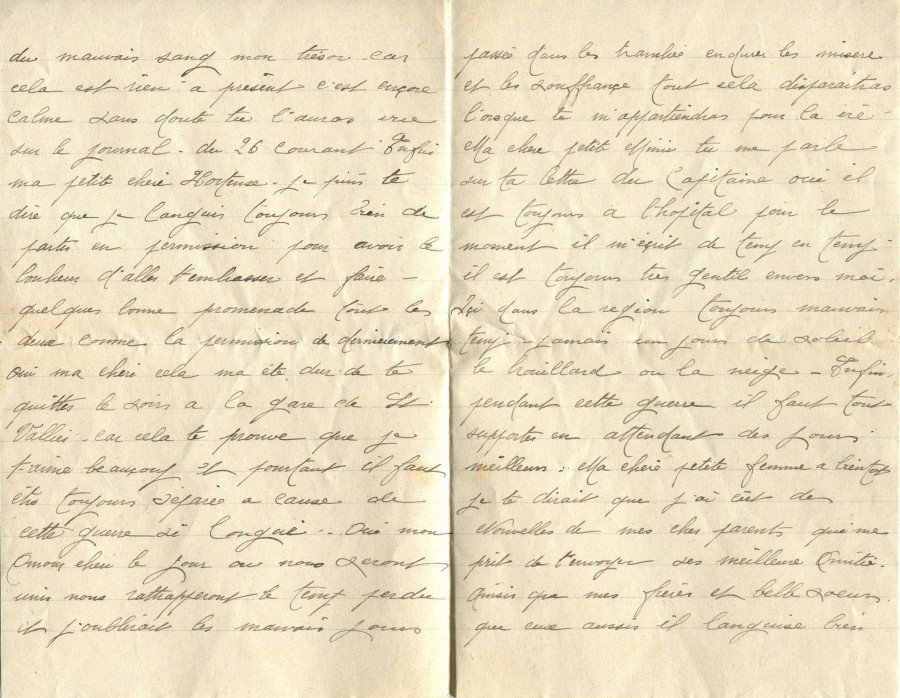 du mauvais sang mon trésor car
cela est rien a présent c'est encore
calme sans doute tu l'auras vue
sur le journal - du 26 courant Enfin
ma petite chérie Hortense - je puis te
dire que je languis toujours bien de
partir en permission pour avoir le
bonheur d'aller t'embrasser et faire -
quelques bonne promenade tout les
deux comme la permission de dernièrement
oui ma chéri cela ma été dur de te
quitter le soir a la gare de St
Vallier - car cela te prouve que je
t'aime beaucoup et pourtant il faut
être toujours séparée a cause de
cette guerre si longue - . Oui mon
Amour chéri le jour ou nous seront
unis nous rattrapperont le temp perdu
et j'oublirait les mauvais jours
passés dans les tranchée endurer les misere
et les souffrance tout sela disparaitras
l'orsque tu m'appartiendras pour la vie -
Ma chere petite Mimie tu me parle
sur ta lettre du Capitaine oui il
est toujours a l'hopital pour le
moment il m'écrit de temp en temp -
il est toujours tres gentil envers moi.
Içi dans la region toujours mauvais
temp - jamais un jours de soleil
le brouillard ou la neige - Enfin.
pendant cette guerre il faut tout
supporter en attendant des jours
meilleurs. Ma cheré petite femme a bientot
je te dirait que j'ai eut de
Nouvelles de mes cher parents qui me
prit de t'envoyer ses meilleure Amitié.
Ainsis que mes frères et belle soeur.
que eux aussis il languise bien